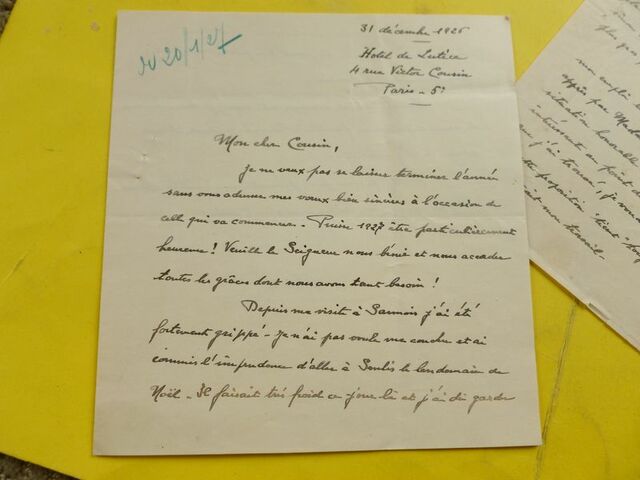 20/1/27
31 décembre 1926
Hotel de Lutèce
4 rue Victor Cousin
Paris - 5e
Mon cher Cousin,
Je ne veux pas se laisser terminer l'année
sans vous adresser mes voeux bien sincères à l'occasion de
celle qui va commencer - Puisse 1927 être particulièrement
heureuse ! Veuille le Seigneur nous bénir et nous accorder
toutes les grâces dont nous avons tant besoin !
Depuis ma visite à Sannois j'ai été
fortement grippé - Je n'ai pas voulu me coucher et ai
commis l'imprudence d'aller à Senlis le lendemain de
Noël - Il faisait très froid ce jour là et j'ai dû garder
mon emploi
après par
situation favorable
intéressant au point de
j'ai trouvé, je
proposition
mon travail.